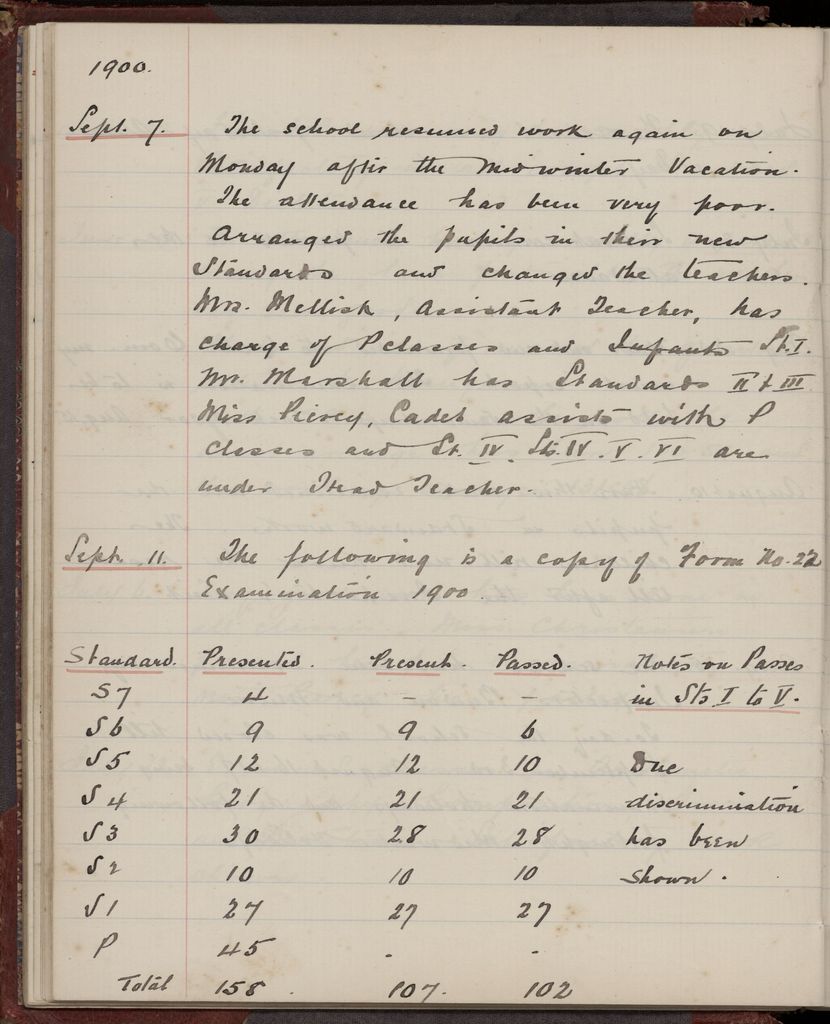 1900.
Sept. 7. The school resumed work again on
Monday after the Midwinter Vacation.
The attendance has been very poor.
Arranged the pupils in their new
Standards and changed the teachers.
Mrs. Mellish, Assistant Teacher, has
charge of P classes and Infants St. I.
Mr. Marshall has Standards II & III
Miss Piercy, Cadet assists with P
classes and St. IV. Sts. IV. V. VI are
under Head Teacher.
Sept. 11. The following is a copy of Form No. 22
Examination 1900.
Standard. Presented. Present. Passed. Notes on Passes
S7 4 – – in Sts I to V.
S6 9 9 6
S5 12 12 10 Due
S4 21 21 21 discrimination
S3 30 28 28 has been
S2 10 10 10 shown.
S1 27 27 27
P 45 . .
Total 158. 107. 102